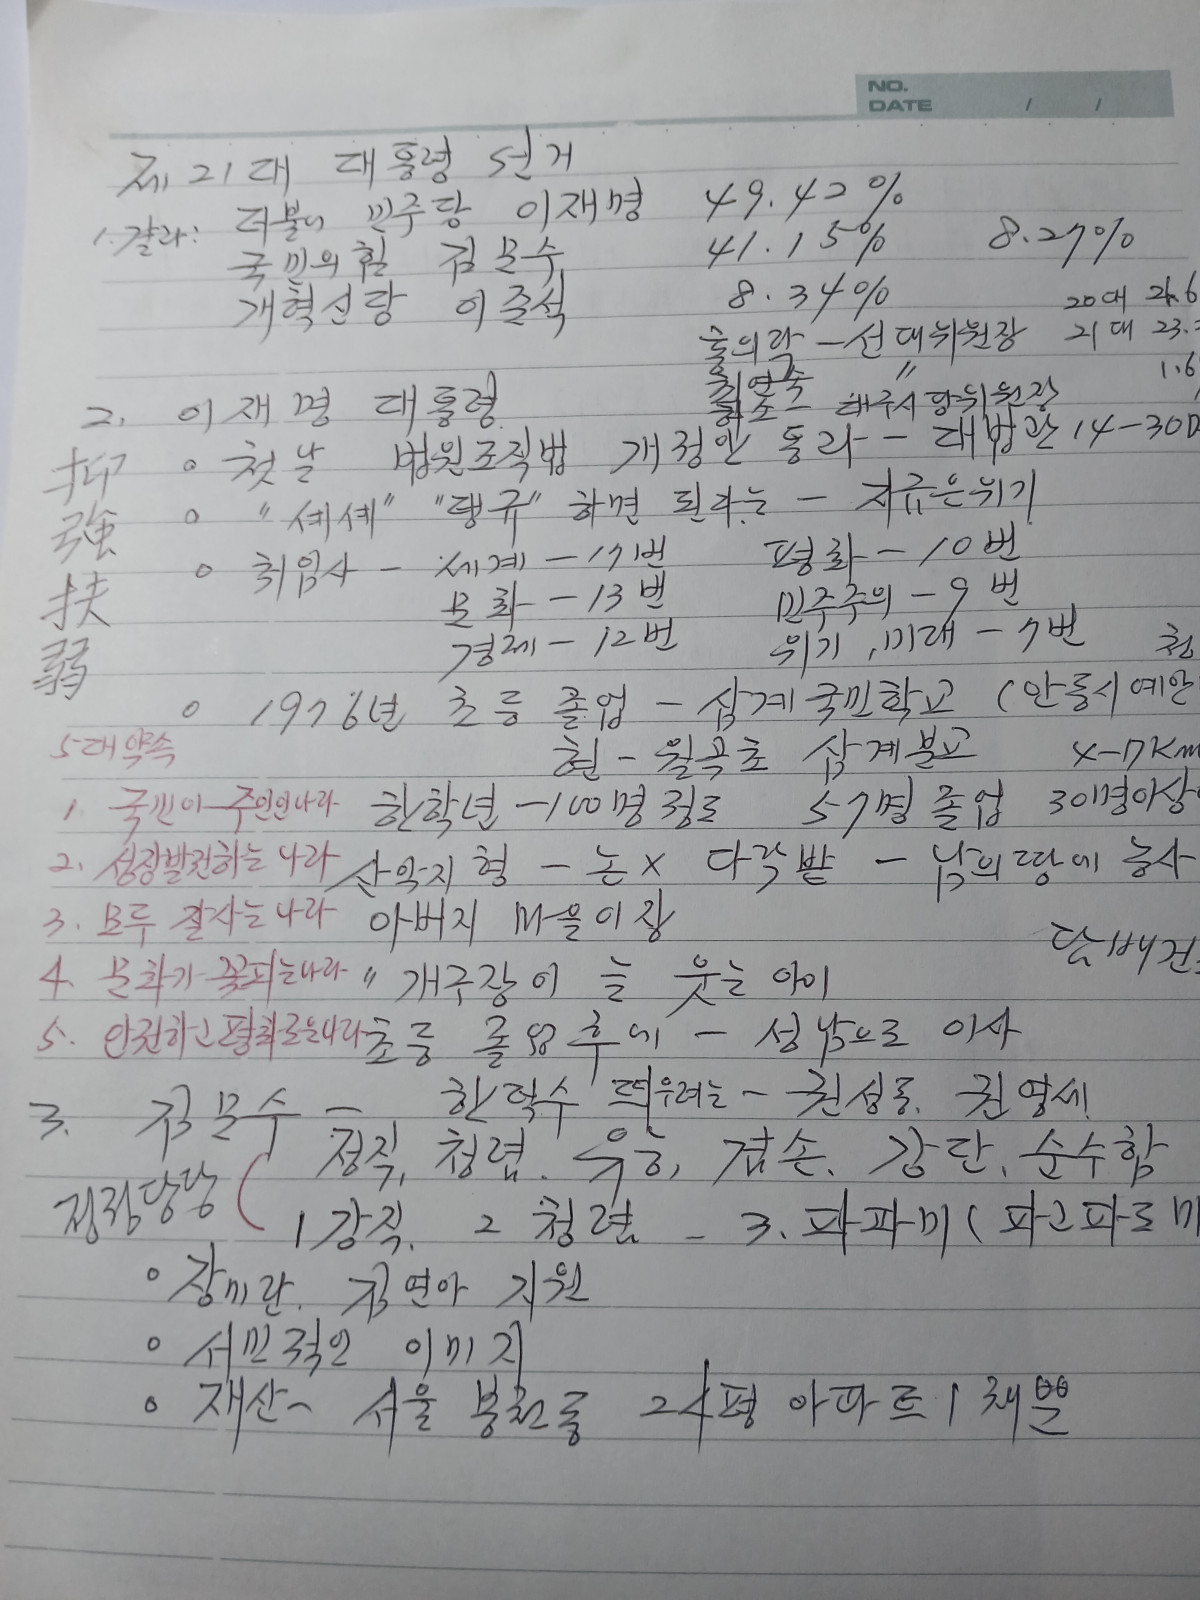 NO.
DATE / /
제21대 대통령 선거
1. 결과: 더불어 민주당 이재명 49.42%
국민의힘 김문수 41.15% 8.27%
개혁신당 이준석 8.34%
20대 21.6
홍의락 - 선대위원장 21대 23.
〃 1.6
허소 - 대구시당위원장
2. 이재명 대통령
抑強扶弱
○ 첫날 법원조직법 개정안 통과 - 대법관 14-30
○ "셰셰" "땡큐" 하면 된다는 - 지금은 위기
○ 취임사 - 세계 - 17번 평화 - 10번
문화 - 13번 민주주의 - 9번
경제 - 12번 위기, 미래 - 7번 청
○ 1976년 초등 졸업 - 삼계국민학교 (안동시 예안
5대약속
현 - 월곡초 삼계분교 4-7Km
1. 국민이 주인인나라 한학년 - 100명 정도 57명 졸업 30명이상
2. 성장발전하는 나라 산악지형 - 논× 다락밭 - 남의 땅에 농사
3. 모두 잘사는 나라 아버지 마을이장
담배건
4. 문화가 꽃피는나라 〃 개구장이 늘 웃는 아이
5. 안전하고 평화로운나라 초등 졸업 후에 - 성남으로 이사
3. 김문수 - 한덕수 띄우려는 - 권성동. 권영세
정직, 청렴. 유능, 겸손. 강단. 순수함
1 강직. 2 청렴 - 3. 파파미 (파고파도 미
○ 장미란. 김연아 지원
○ 서민적인 이미지
○ 재산 - 서울 봉천동 24평 아파트 1채뿐